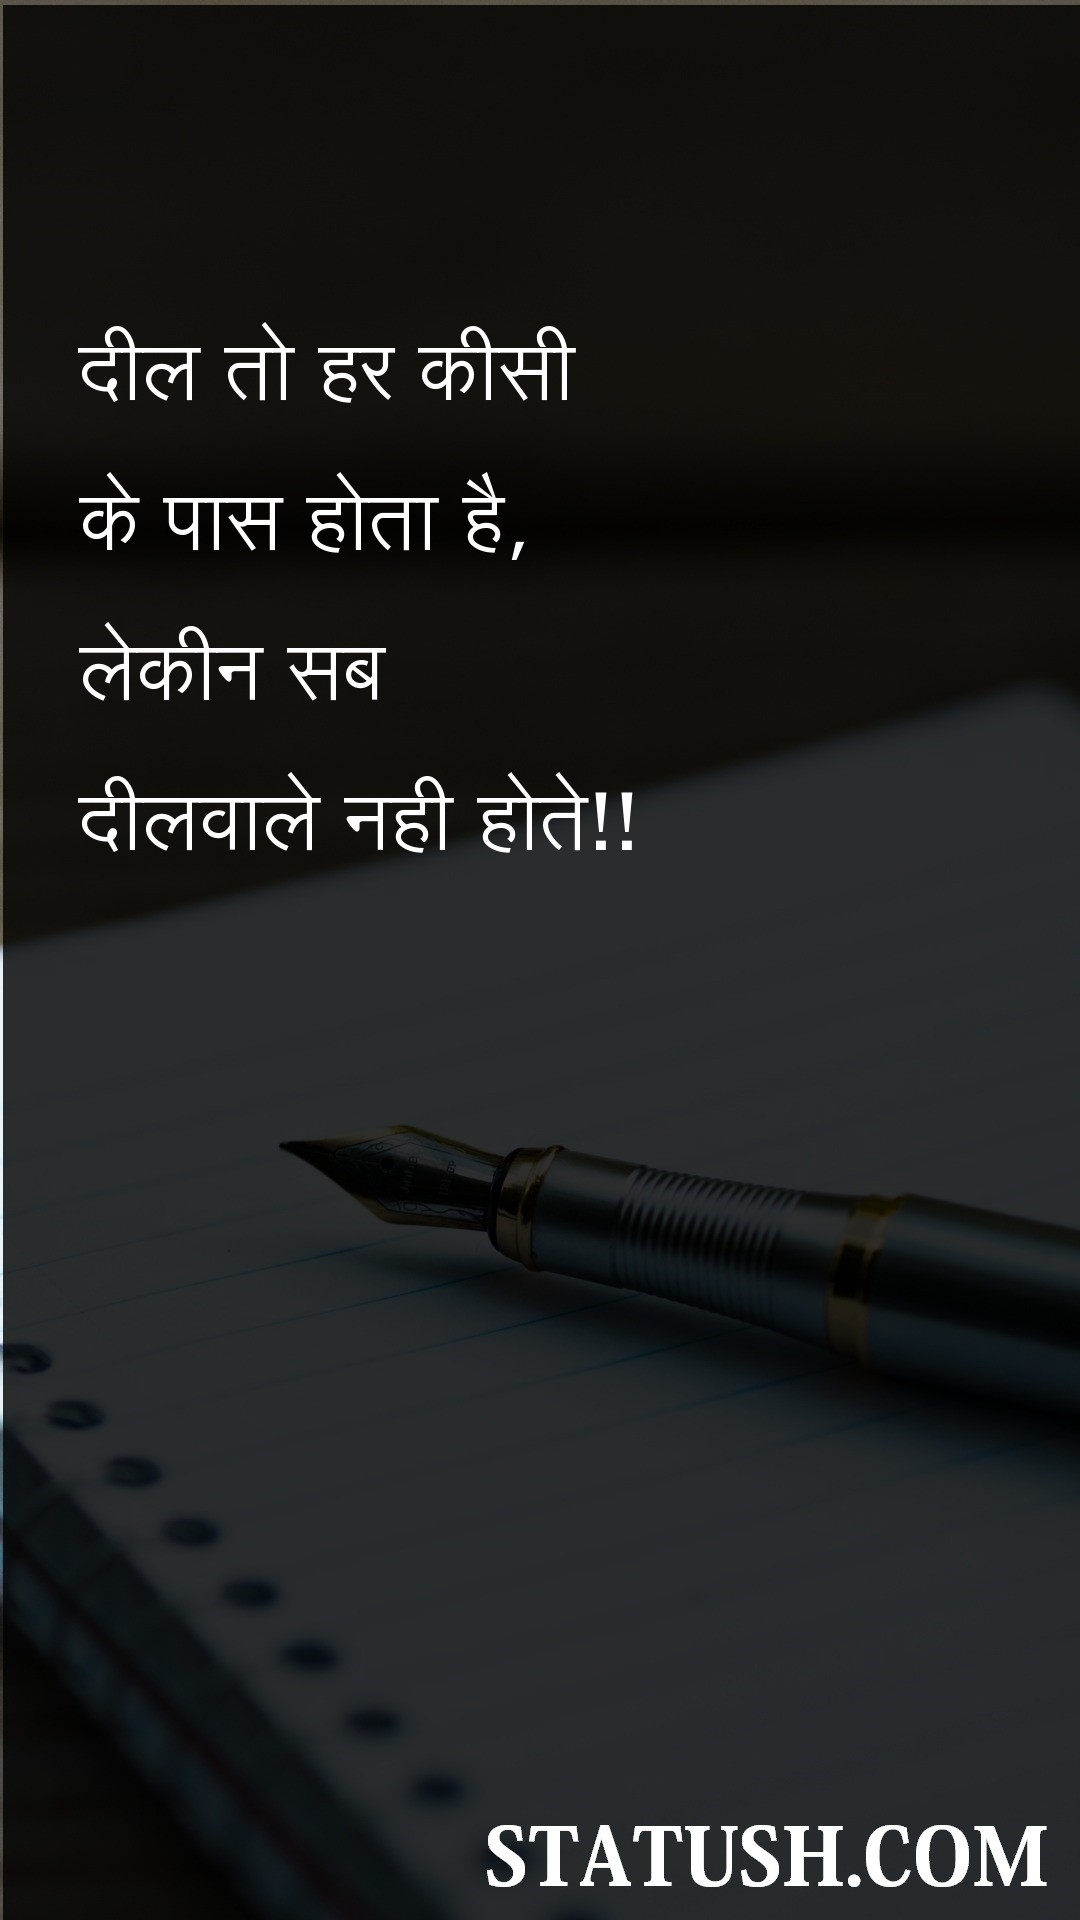 दील तो हर कीसी
के पास होता है,
लेकीन सब
दीलवाले नही होते!!
STATUSH.COM